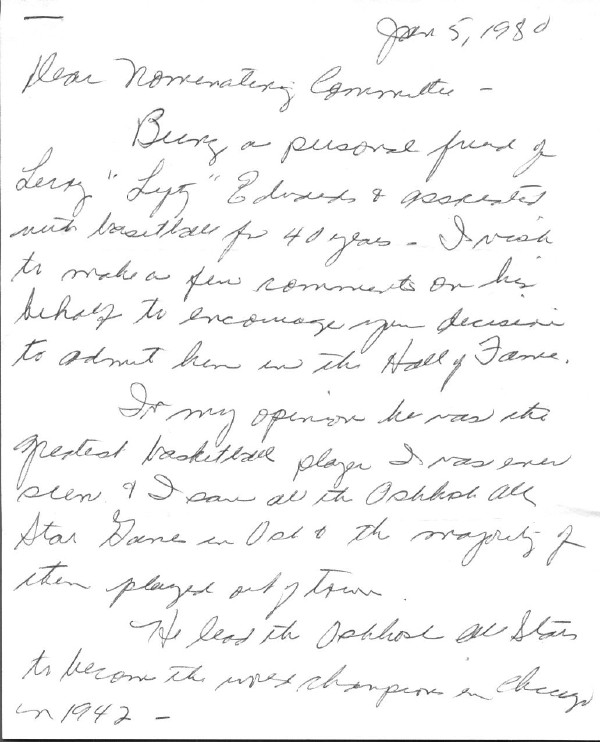 Jan 5, 1980
Dear Nominating Committee -
Being a personal friend of
Leroy "Lefty" Edwards & associated
with basketball for 40 years - I wish
to make a few comments on his
behalf to encourage your decision
to admit him in the Hall of Fame.
In my opinion he was the
greatest basketball player I was ever
seen & I saw all the Oshkosh All
Star Games in Osh & the majority of
them played out of town.
He lead the Oshkosh All Stars
to become the world champions in Chicago
in 1942 -